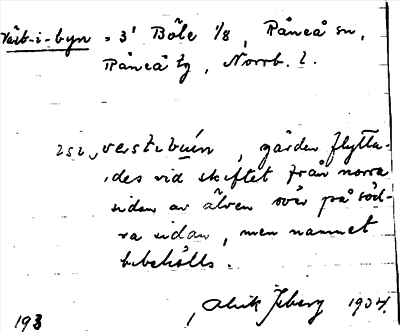 Väst-i-byn = 3' Böle 1/8, Råneå sn,
Råneå tg, Norrb. l.
värstibuin, gården flytta-
des vid skiftet från norra
sidan av älven över på söd-
ra sidan, men namnet
bibehölls.
Isberg 1934.
193